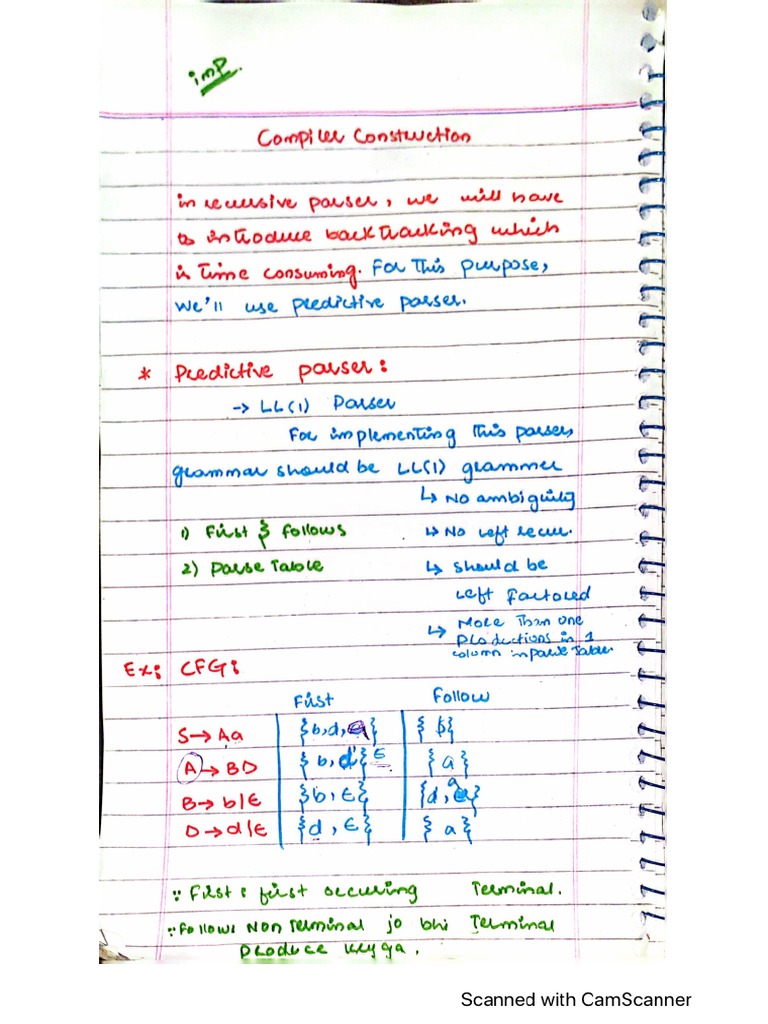 imp.
Compiler Construction
in recursive parser, we will have
to introduce backtracking which
is time consuming. For this purpose,
we'll use predictive parser.
* Predictive parser:
→ LL(1) Parser
For implementing this parser,
grammar should be LL(1) grammer
↳ No ambiguity
1) First & follows ↳ No left recur.
2) Parse Table ↳ should be
left factored
↳ More than one
productions in 1
column in parse table.
Ex: CFG:
First Follow
S → Aa {b,d,a} {$}
A → BD {b,d} ε {a}
B → b/ε {b,ε} {d,a}
D → d/ε {d,ε} {a}
∵ First: first occuring Terminal.
∵ Follow: Non Terminal jo bhi Terminal
produce keyga.
Scanned with CamScanner